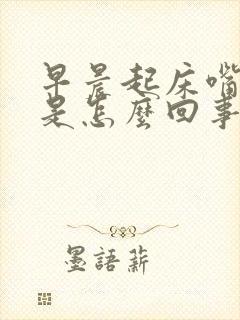 早晨起床嘴
是怎麼回事
墨語薪